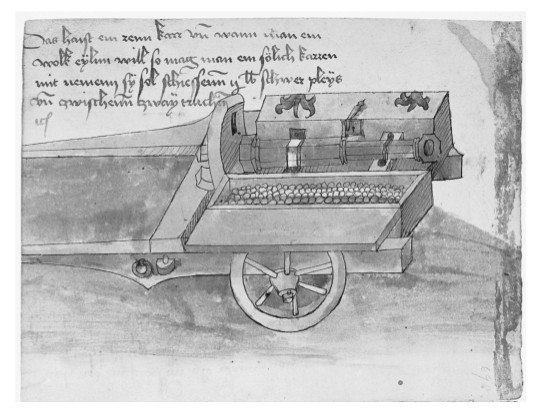 Das haist ein renn karr vn wann man ein
volk eyllin will so mag man ein sölich karren
mit nemenn sy sol schiessenn ij lb schwer pleys
vn zwischenn zway truchen